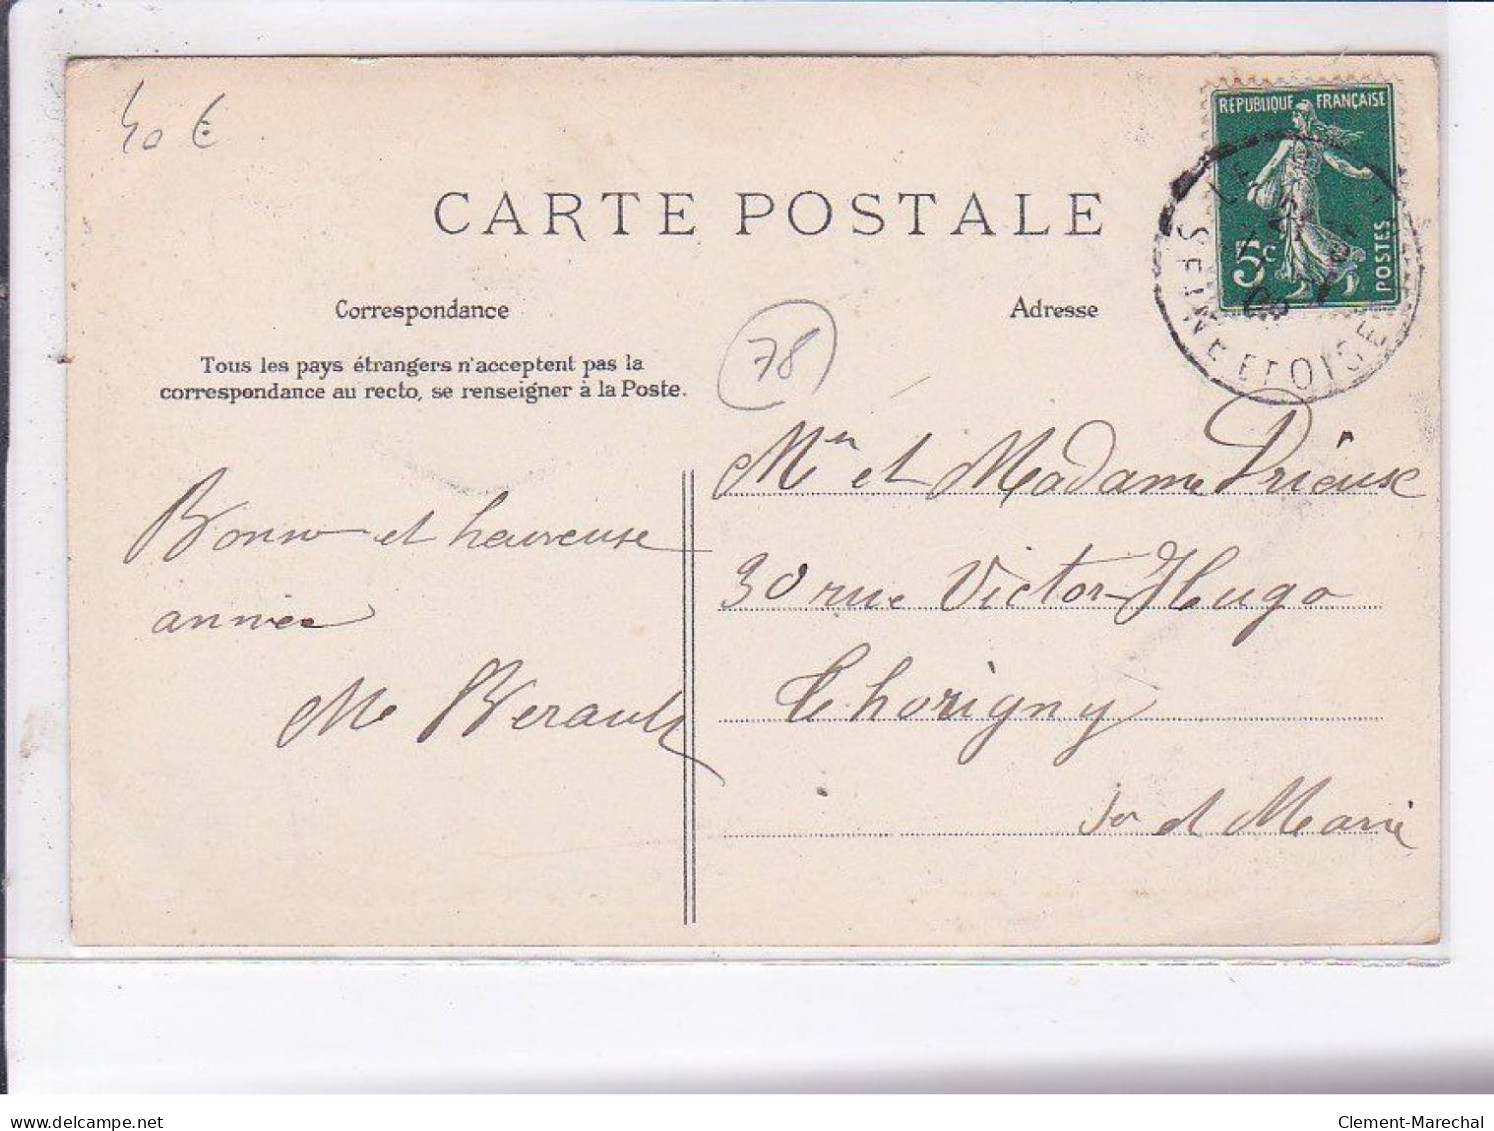 40 €
RÉPUBLIQUE FRANÇAISE
5c
POSTES
SEINE ET OISE
CARTE POSTALE
Correspondance
Adresse
Tous les pays étrangers n'acceptent pas la
correspondance au recto, se renseigner à la Poste.
78
Bonne et heureuse
année
Me Berault
Mr et Madame Prieux
30 rue Victor-Hugo
Thorigny
S et Marne
delcampe.net
Clement-Marechal